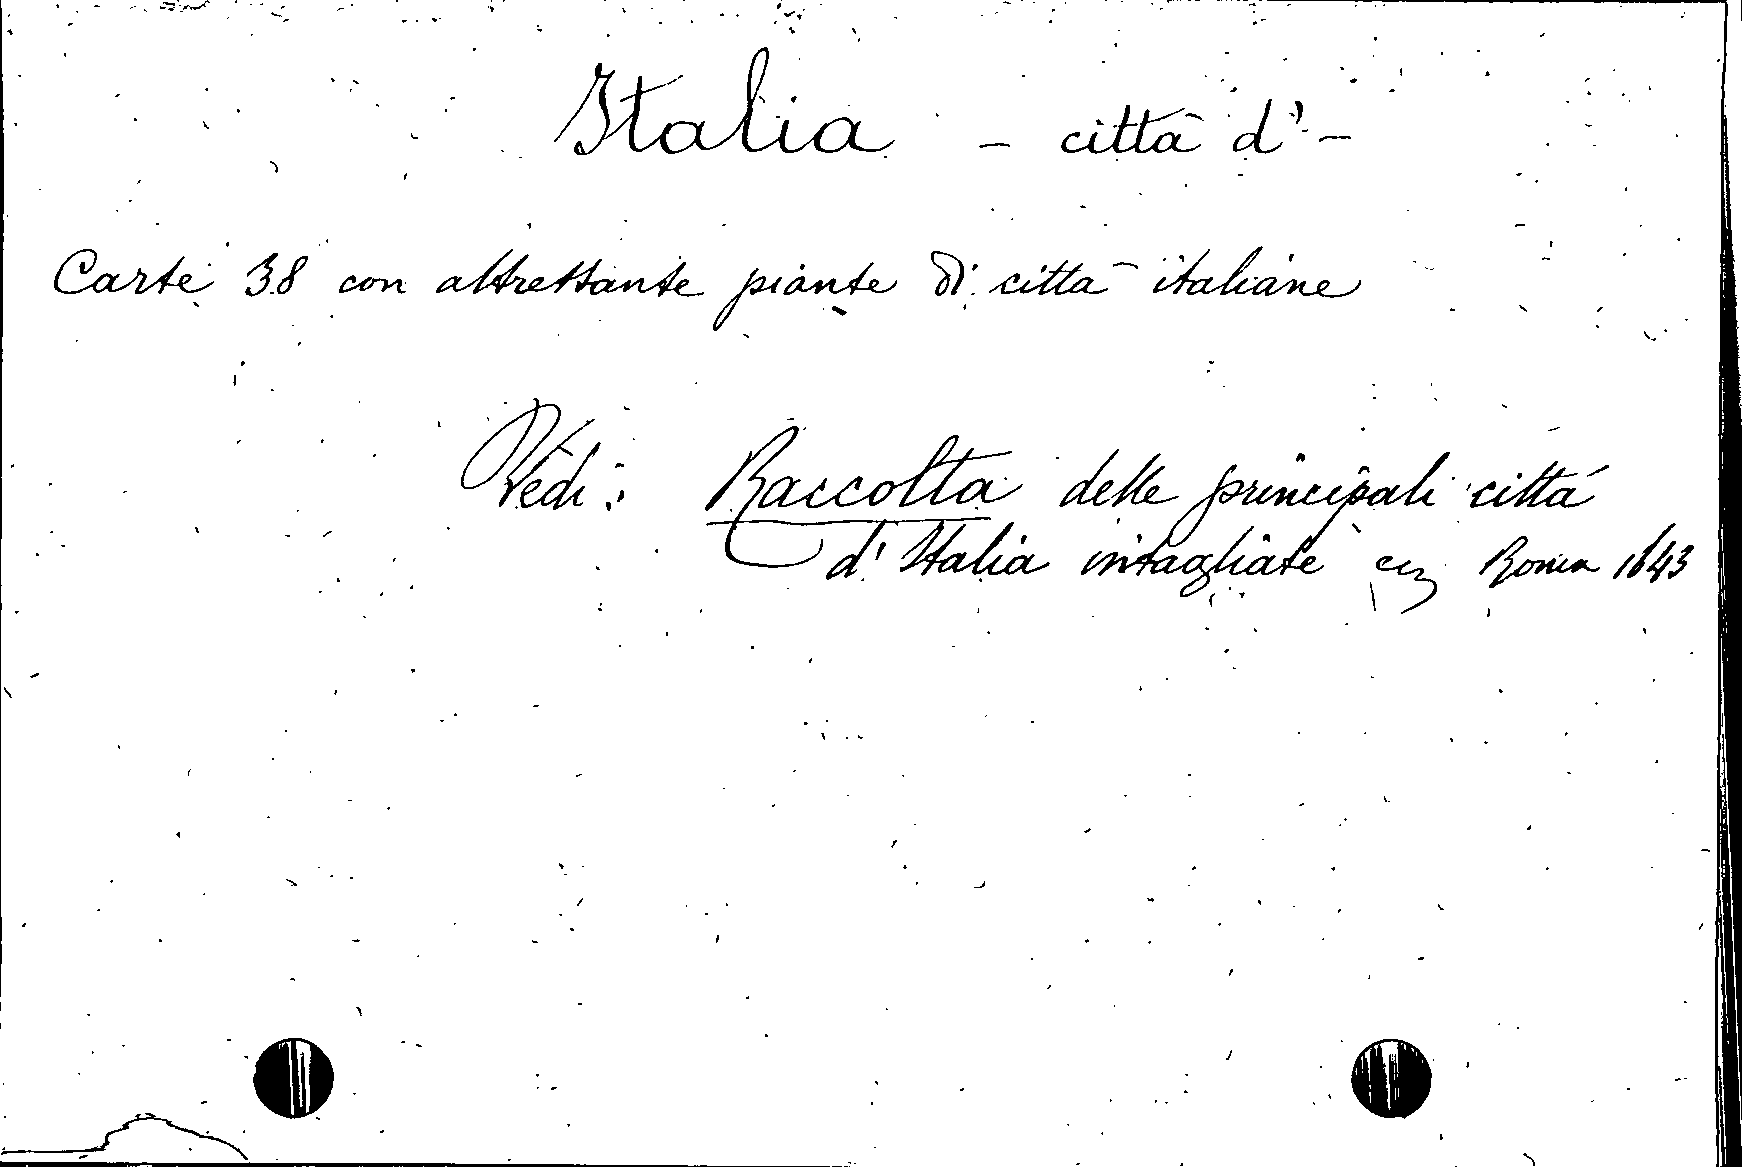 Italia - città d' -
Carte 38 con altrettante piante di città italiane
Vedi: Raccolta delle principali città
d'Italia intagliate ecc Roma 1643